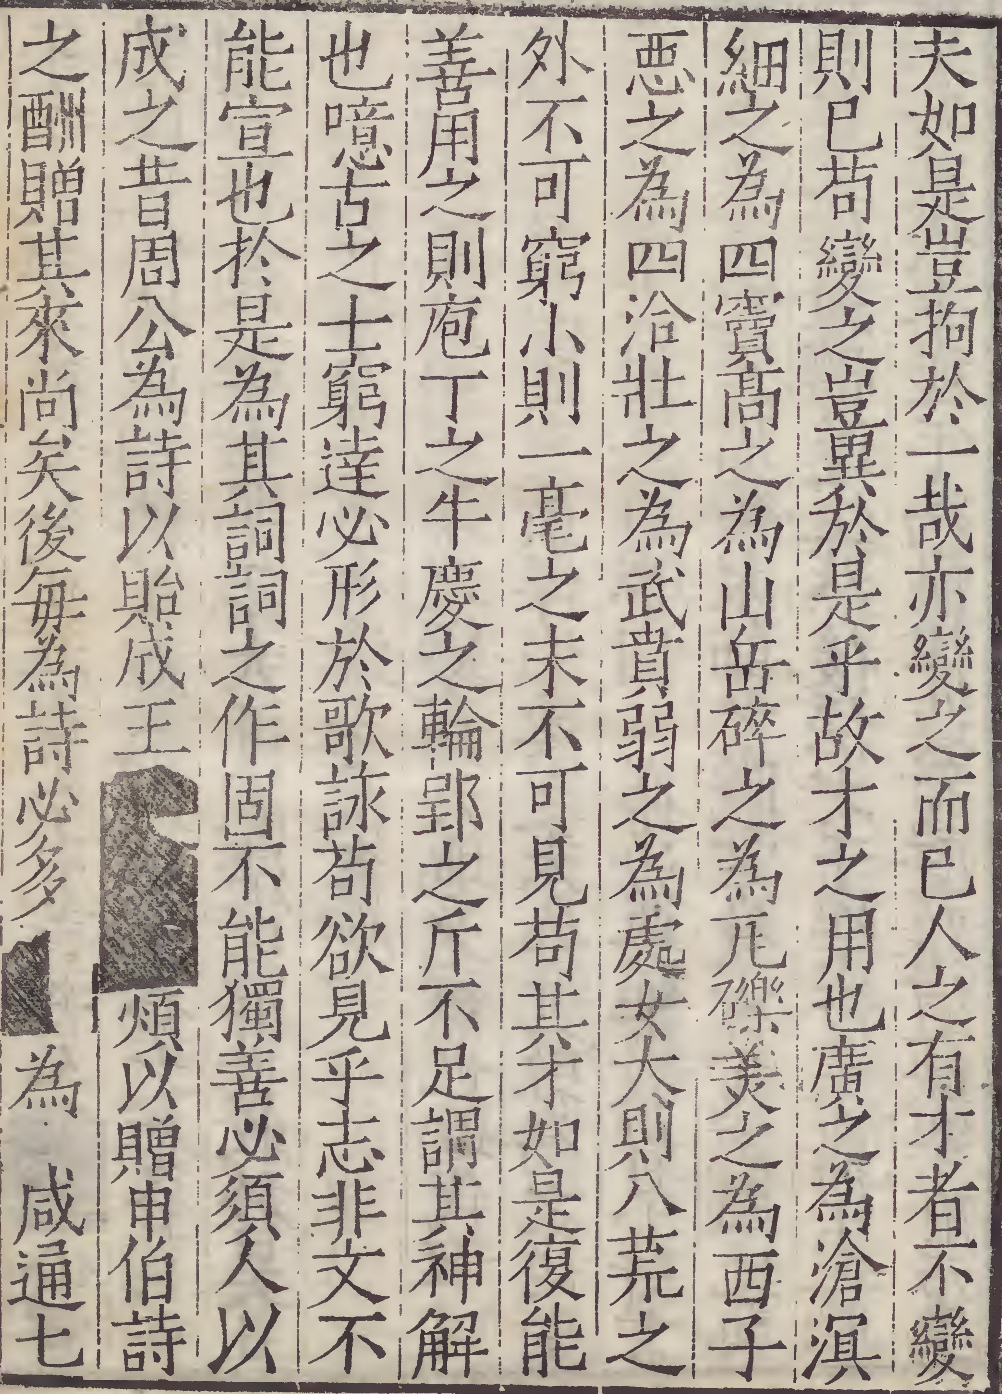 夫如是豈拘於一哉亦變之而已人之有才者不變
則已苟變之豈異於是乎故才之用也廣之為滄溟
細之為四竇高之為山岳碎之為瓦礫美之為西子
惡之為四洽壯之為武賁弱之為處女大則八荒之
外不可窮小則一毫之末不可見苟其才如是復能
善用之則庖丁之牛慶之輪郢之斤不足謂其神解
也噫古之士窮達必形於歌詠苟欲見乎志非文不
能宣也於是為其詞詞之作固不能獨善必須人以
成之昔周公為詩以貽成王 煩以贈申伯詩
之酬贈其來尚矣後每為詩必多 為 咸通七